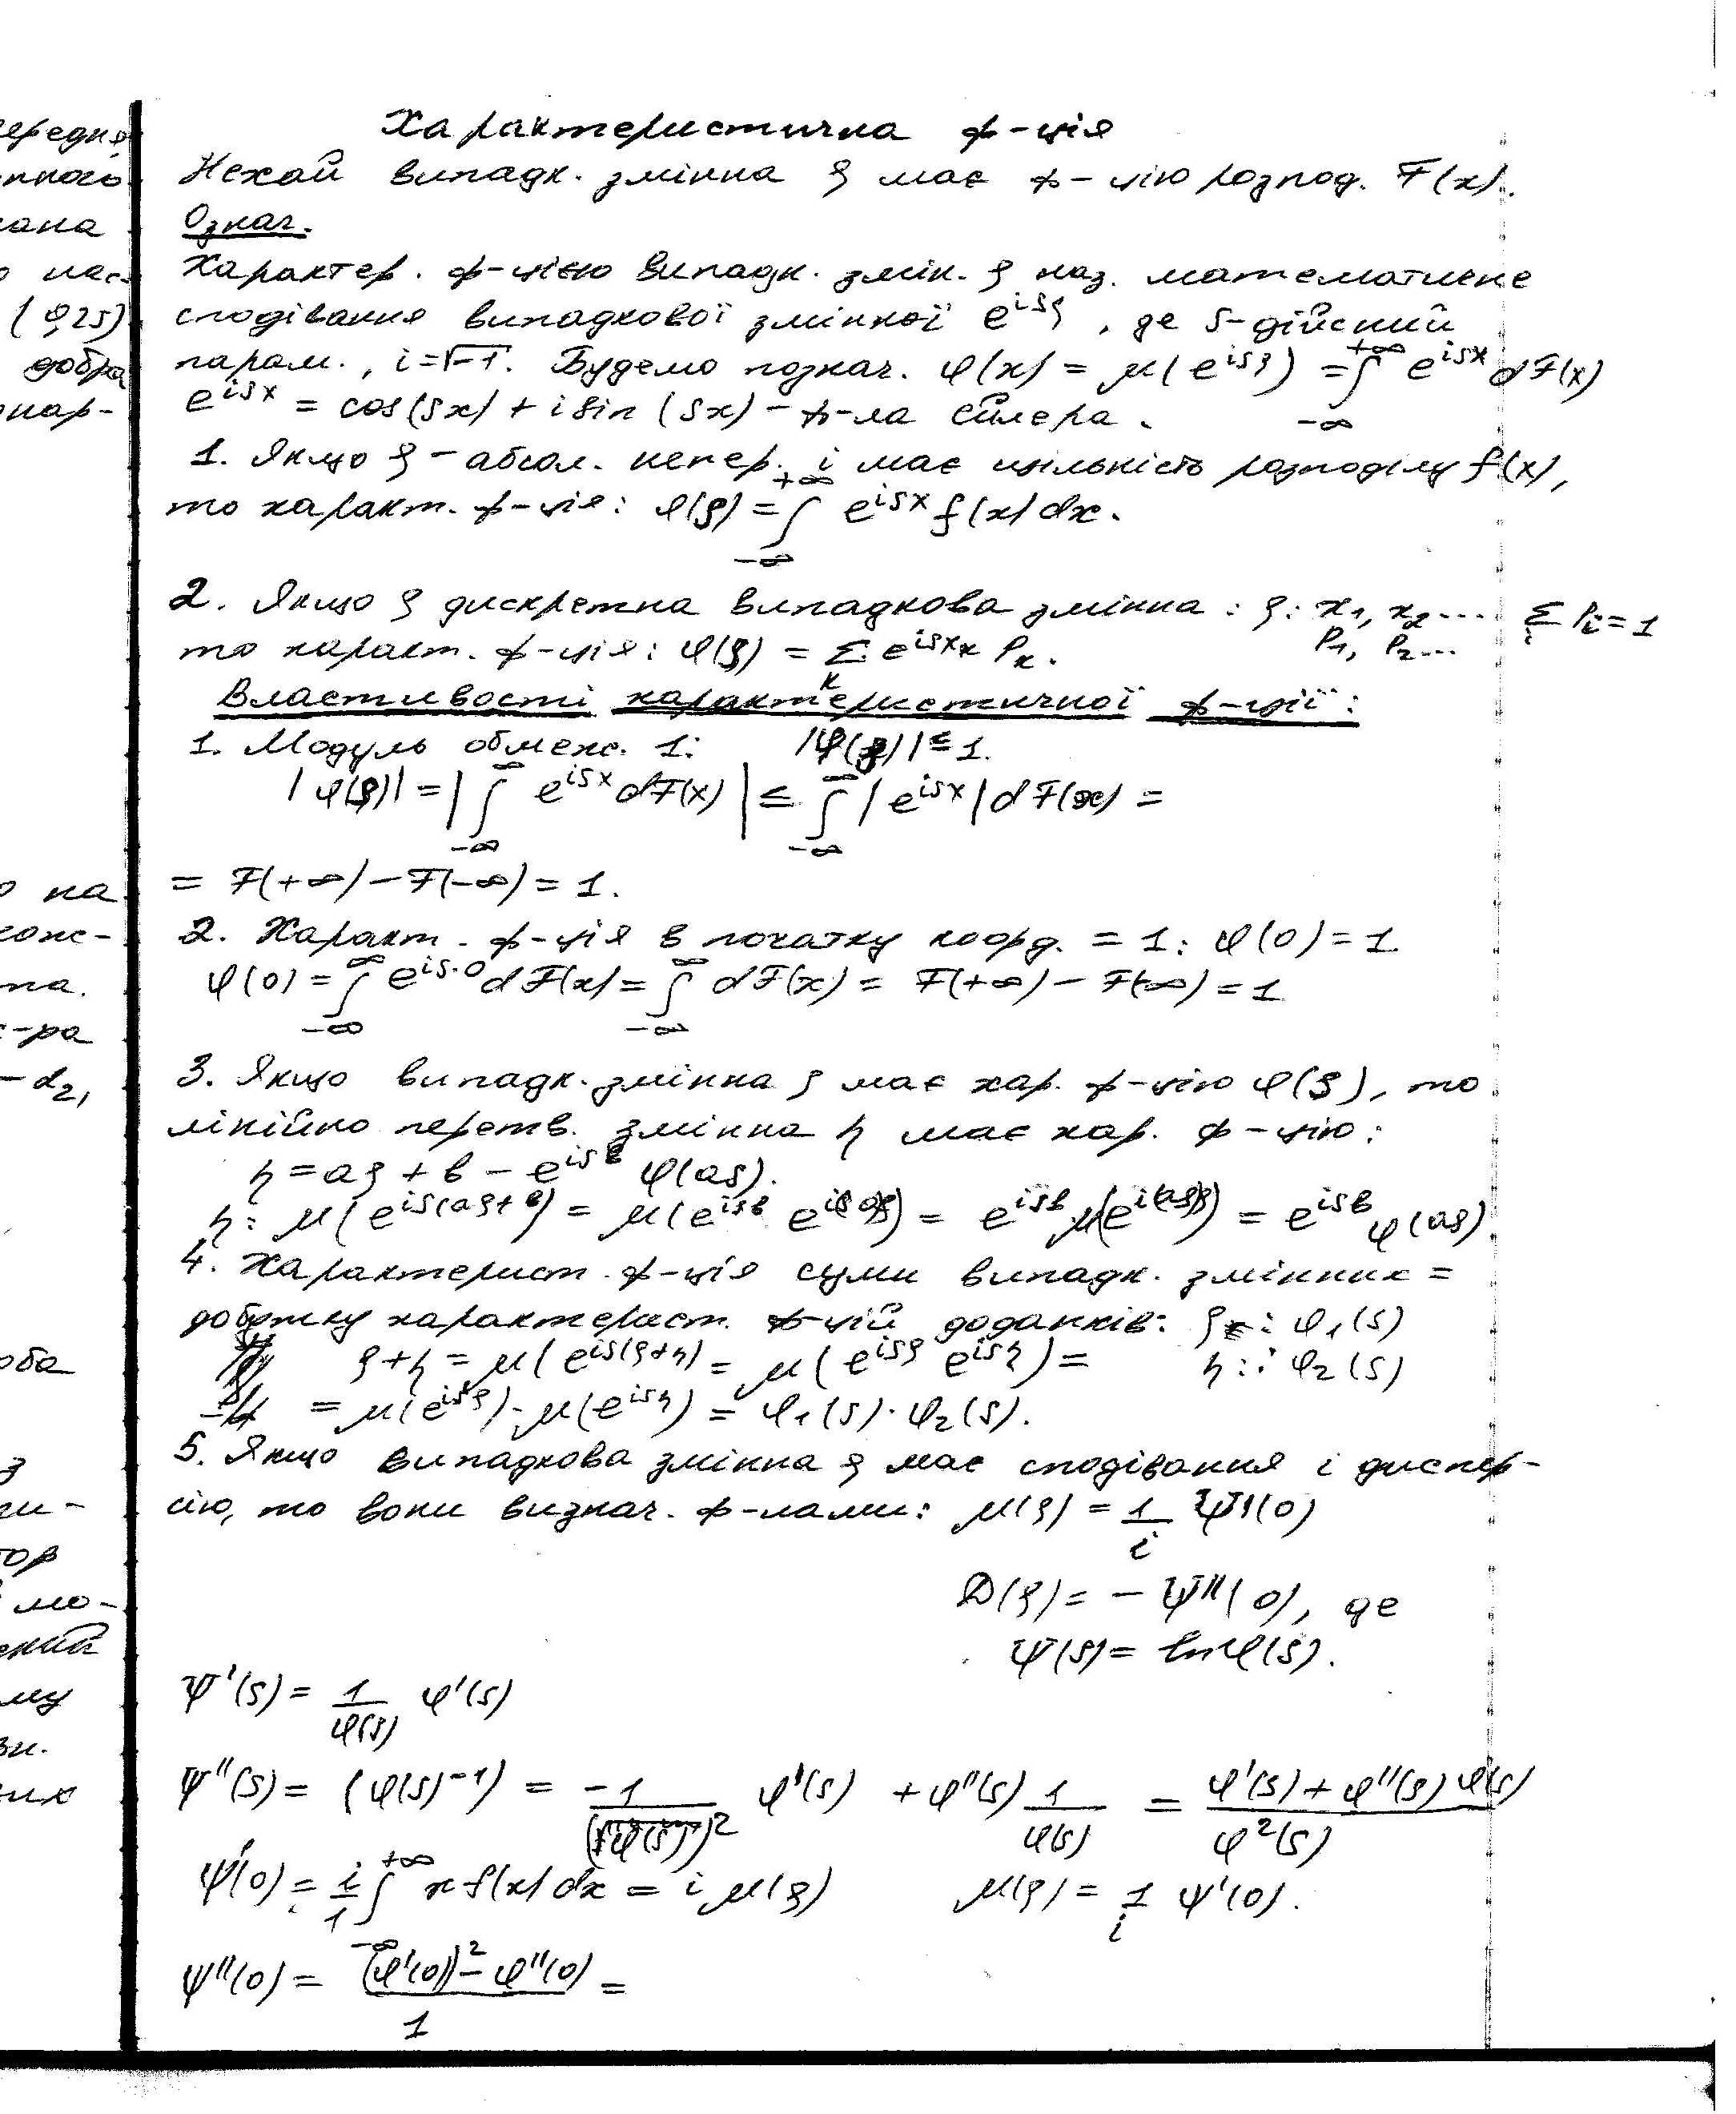 Характеристична ф-ція
Нехай випадк. змінна ξ має ф-цію розпод. F(x).
Означ.
Характер. ф-цією випадк. змін. ξ наз. математичне
сподівання випадкової змінної e^{isξ}, де s-дійсний
парам., i=√-1. Будемо познач. φ(x) = μ(e^{isξ}) = ∫_{-∞}^{+∞} e^{isx} dF(x)
e^{isx} = cos(sx) + i sin(sx) - ф-ла Ейлера.
1. Якщо ξ - абсол. непер. і має щільність розподілу f(x),
то характ. ф-ція: φ(s) = ∫_{-∞}^{+∞} e^{isx} f(x) dx.
2. Якщо ξ дискретна випадкова змінна: ξ: x₁, x₂... Σ_i P_i = 1
P₁, P₂...
то характ. ф-ція: φ(s) = Σ_k e^{isx_k} P_k.
Властивості характеристичної ф-ції:
1. Модуль обмеж. 1: |φ(s)| ≤ 1.
|φ(s)| = |∫_{-∞}^{∞} e^{isx} dF(x)| ≤ ∫_{-∞}^{∞} |e^{isx}| dF(x) =
= F(+∞) - F(-∞) = 1.
2. Характ. ф-ція в початку коорд. = 1: φ(0) = 1
φ(0) = ∫_{-∞}^{∞} e^{is·0} dF(x) = ∫_{-∞}^{∞} dF(x) = F(+∞) - F(-∞) = 1
3. Якщо випадк. змінна ξ має хар. ф-цію φ(s), то
лінійно перетв. змінна η має хар. ф-цію:
η = aξ + b - e^{isb} φ(as).
η: μ(e^{is(aξ+b)}) = μ(e^{isb} e^{isaξ}) = e^{isb} μ(e^{i(as)ξ}) = e^{isb} φ(as)
4. Характерист. ф-ція суми випадк. змінних =
добутку характерист. ф-цій доданків: ξ: φ₁(s)
ξ+η = μ(e^{is(ξ+η)} = μ(e^{isξ} e^{isη}) = η: φ₂(s)
= μ(e^{isξ}) · μ(e^{isη}) = φ₁(s) · φ₂(s).
5. Якщо випадкова змінна ξ має сподівання і диспер-
сію, то вони визнач. ф-лами: μ(ξ) = 1/i Ψ'(0)
D(ξ) = - Ψ''(0), де
Ψ(s) = ln φ(s).
Ψ'(s) = 1/φ(s) φ'(s)
Ψ''(s) = (φ(s)^{-1}) = -1/(φ(s))² φ'(s) + φ''(s) 1/φ(s) = (φ'(s) + φ''(s) φ(s))/φ²(s)
Ψ'(0) = i/1 ∫_{-∞}^{+∞} x f(x) dx = i μ(ξ) μ(ξ) = 1/i Ψ'(0).
Ψ''(0) = ((φ'(0))² - φ''(0))/1 =